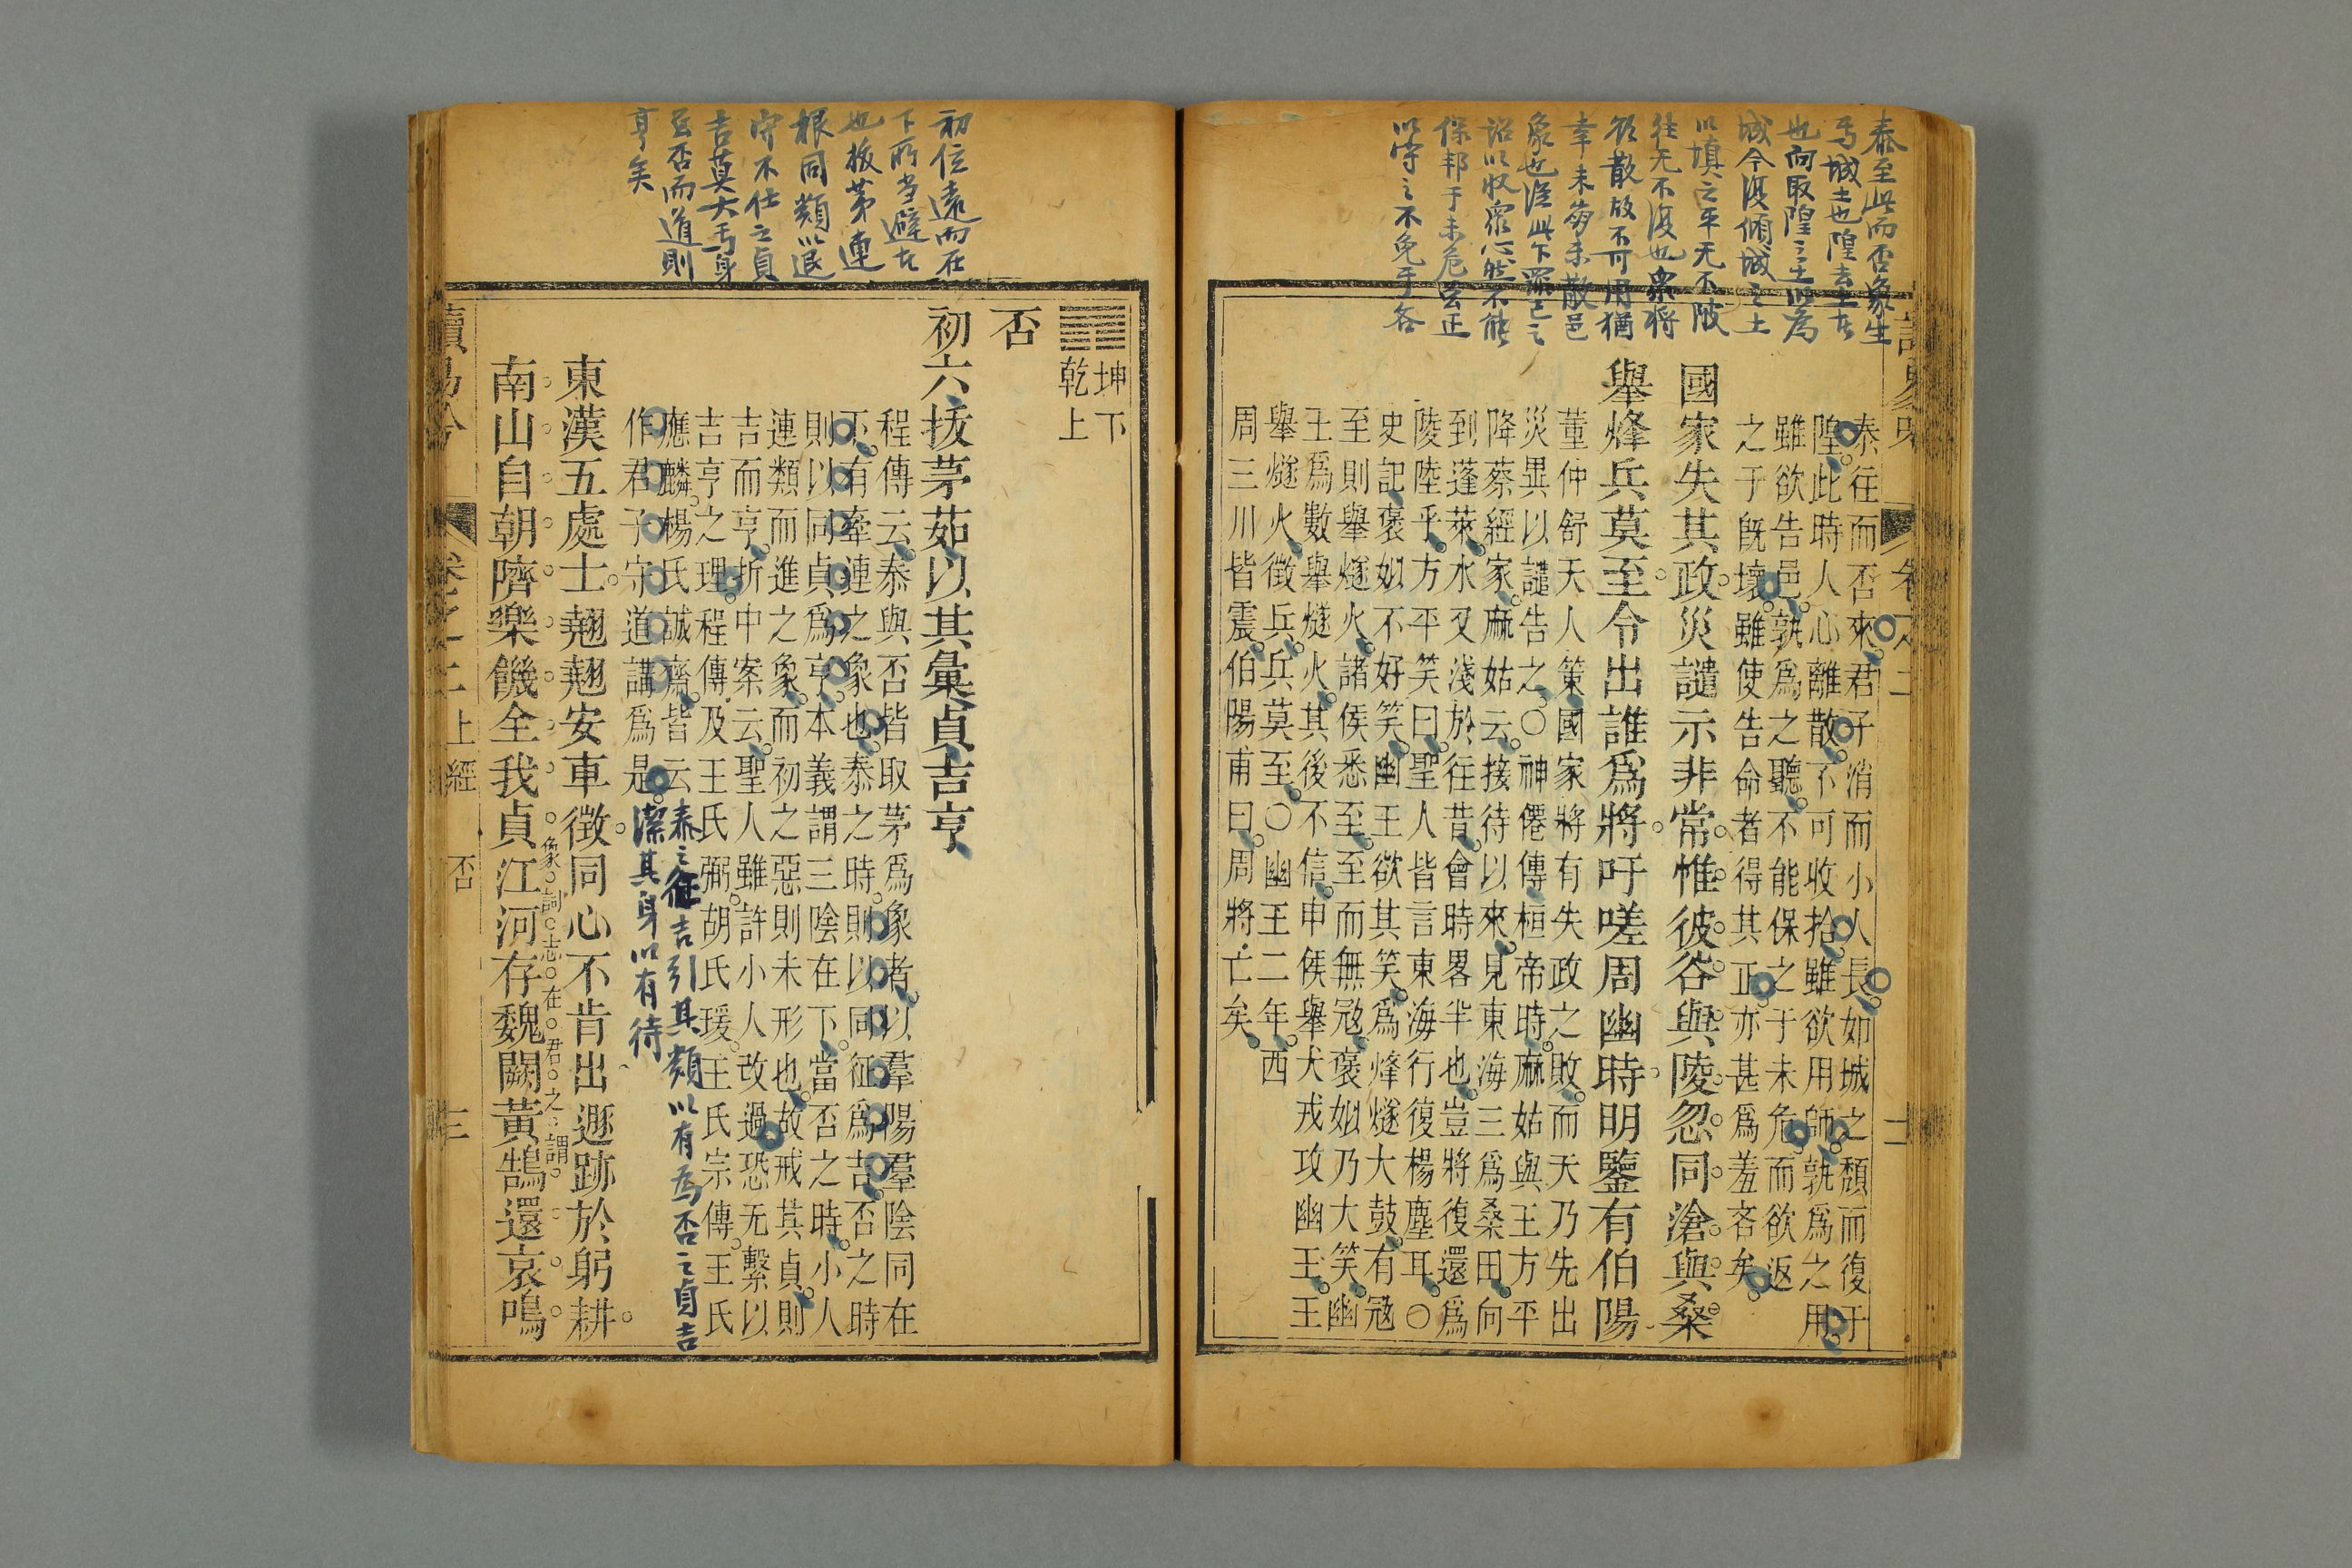 泰至此而否象生
焉城土也隍去土在
也向取隍之土以爲
城今復傾城之土
以填之平无不陂
往无不復也衆將
象也
保邦于未危雖正
以守之不免于吝
泰往而否來君子消而小人長如城之頽而復于
隍此時人心離散不可收拾雖欲用師孰爲之用
雖欲告邑孰爲之聽不能保之于未危而欲返
之于旣壞雖使告命者得其正亦甚爲羞吝矣
國家失其政災譴示非常惟彼谷與陵忽同滄與桑
舉烽兵莫至令出誰爲將吁嗟周幽時明鑒有伯陽
董仲舒天人策國家將有失政之敗而天乃先出
災異以譴告之○神僊傳桓帝時麻姑與王方平
降蔡經家麻姑云接待以來見東海三爲桑田向
到蓬萊水又淺於往昔會時畧半也豈將復還爲
陵陸乎方平笑曰聖人皆言東海行復楊塵耳○
史記褒姒不好笑幽王欲其笑爲烽燧大鼓有冦
至則舉燧火諸侯悉至至而無冦褒姒乃大笑幽
王爲數舉燧火其後不信申侯舉犬戎攻幽王王
舉燧火徵兵兵莫至○幽王二年西
周三川皆震伯陽甫曰周將亡矣
初位遠而在
下所当避在
也拔茅連
根同類以退
守不仕之貞
吉莫大焉身
虽否而道則
亨矣
坤下
乾上
否
初六拔茅茹以其彙貞吉亨
程傳云泰與否皆取茅爲象者以羣陽羣陰同在
下有牽連之象也泰之時則以同征爲吉否之時
則以同貞爲亨本義謂三陰在下當否之時小人
連類而進之象而初之惡則未形也故戒其貞則
吉而亨折中案云聖人雖許小人改過恐无繫以
吉亨之理程傳及王氏弼胡氏瑗王氏宗傳王氏
應麟楊氏誠齋皆云泰之征吉引其類以有爲否之貞吉
作君子守道講爲是潔其身以有待
東漢五處士翹翹安車徵同心不肯出遯跡於躬耕
南山自朝隮樂饑全我貞象詞志在君之謂江河存魏闕黃鵠還哀鳴
讀易
卷之二上經
否